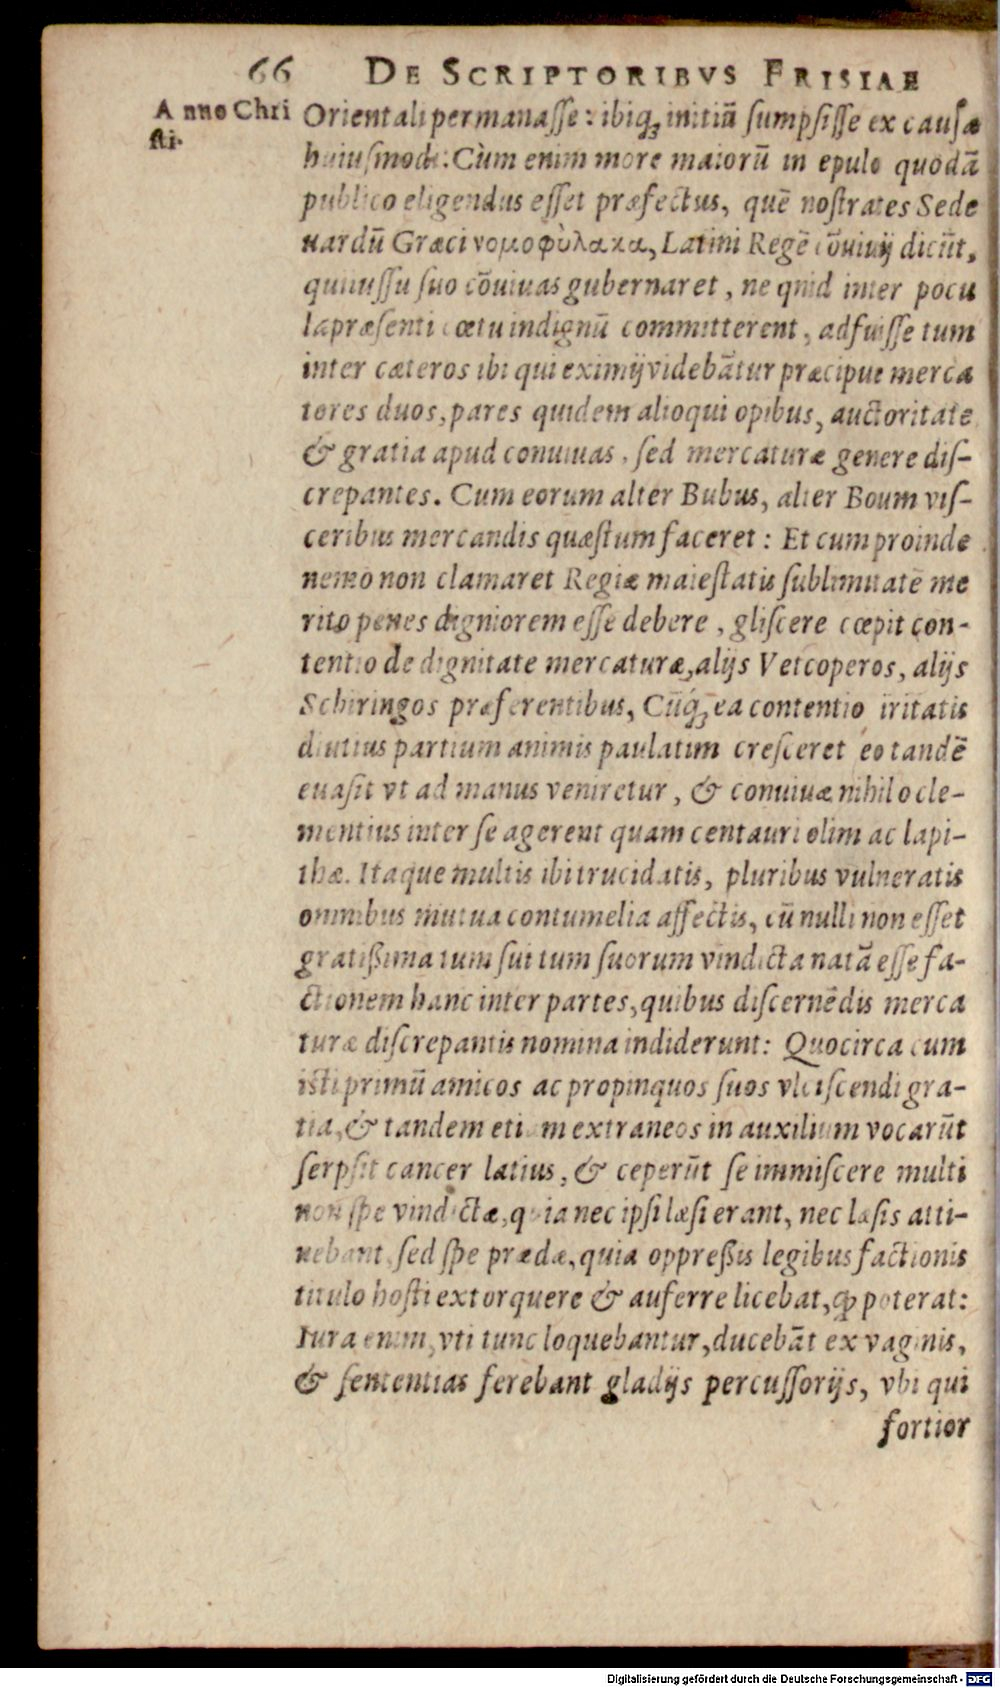 66 DE SCRIPTORIBVS FRISIAE
Anno Chri
sti.
Orientali permanasse: ibiq́; initiū sumpsisse ex causæ
huiusmodi: Cùm enim more maiorū in epulo quodā
publico eligendus esset præfectus, quē nostrates Sede
uardū Græci νομοφὺλακα, Latini Regē cōuiuij dicūt,
qui iussu suo cōuiuas gubernaret, ne quid inter pocu
la præsenti cœtu indignū committerent, adfuisse tum
inter cæteros ibi qui eximij videbātur præcipue merca
tores duos, pares quidem alioqui opibus, auctoritate
& gratia apud conuiuas, sed mercaturæ genere dis-
crepantes. Cum eorum alter Bubus, alter Boum vis-
ceribus mercandis quæstum faceret: Et cum proinde
nemo non clamaret Regiæ maiestatis sublimitatē me
rito penes digniorem esse debere, gliscere cœpit con-
tentio de dignitate mercaturæ, alijs Vetcoperos, alijs
Schiringos præferentibus, Cūq́; ea contentio iritatis
diutius partium animis paulatim cresceret eo tandē
euasit vt ad manus veniretur, & conuiuæ nihilo cle-
mentius inter se agerent quam centauri olim ac lapi-
thæ. Itaque multis ibi trucidatis, pluribus vulneratis
omnibus mutua contumelia affectis, cū nulli non esset
gratißima tum sui tum suorum vindicta natā esse fa-
ctionem hanc inter partes, quibus discernēdis merca
turæ discrepantis nomina indiderunt: Quocirca cum
isti primū amicos ac propinquos suos vlciscendi gra-
tia, & tandem etiam extraneos in auxilium vocarūt
serpsit cancer latius, & ceperūt se immiscere multi
non spe vindictæ, quia nec ipsi læsi erant, nec læsis atti-
nebant, sed spe prædæ, quia oppreßis legibus factionis
titulo hosti extorquere & auferre licebat, qͅ poterat:
Iura enim, vti tunc loquebantur, ducebāt ex vaginis,
& sententias ferebant gladijs percussorijs, vbi qui
fortior
Digitalisierung gefördert durch die Deutsche Forschungsgemeinschaft - DFG